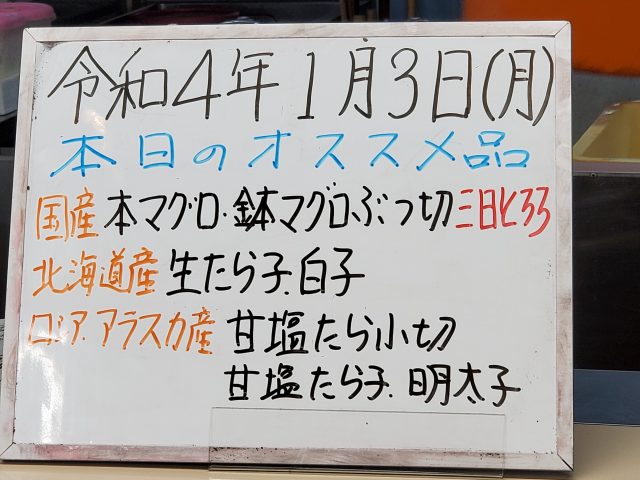 令和4年1月3日(月)
本日のオススメ品
国産 本マグロ.鉢マグロ.ぶつ切 三日とろろ
北海道産 生たら子.白子
ロシア.アラスカ産 甘塩たら小切
甘塩たら子.明太子